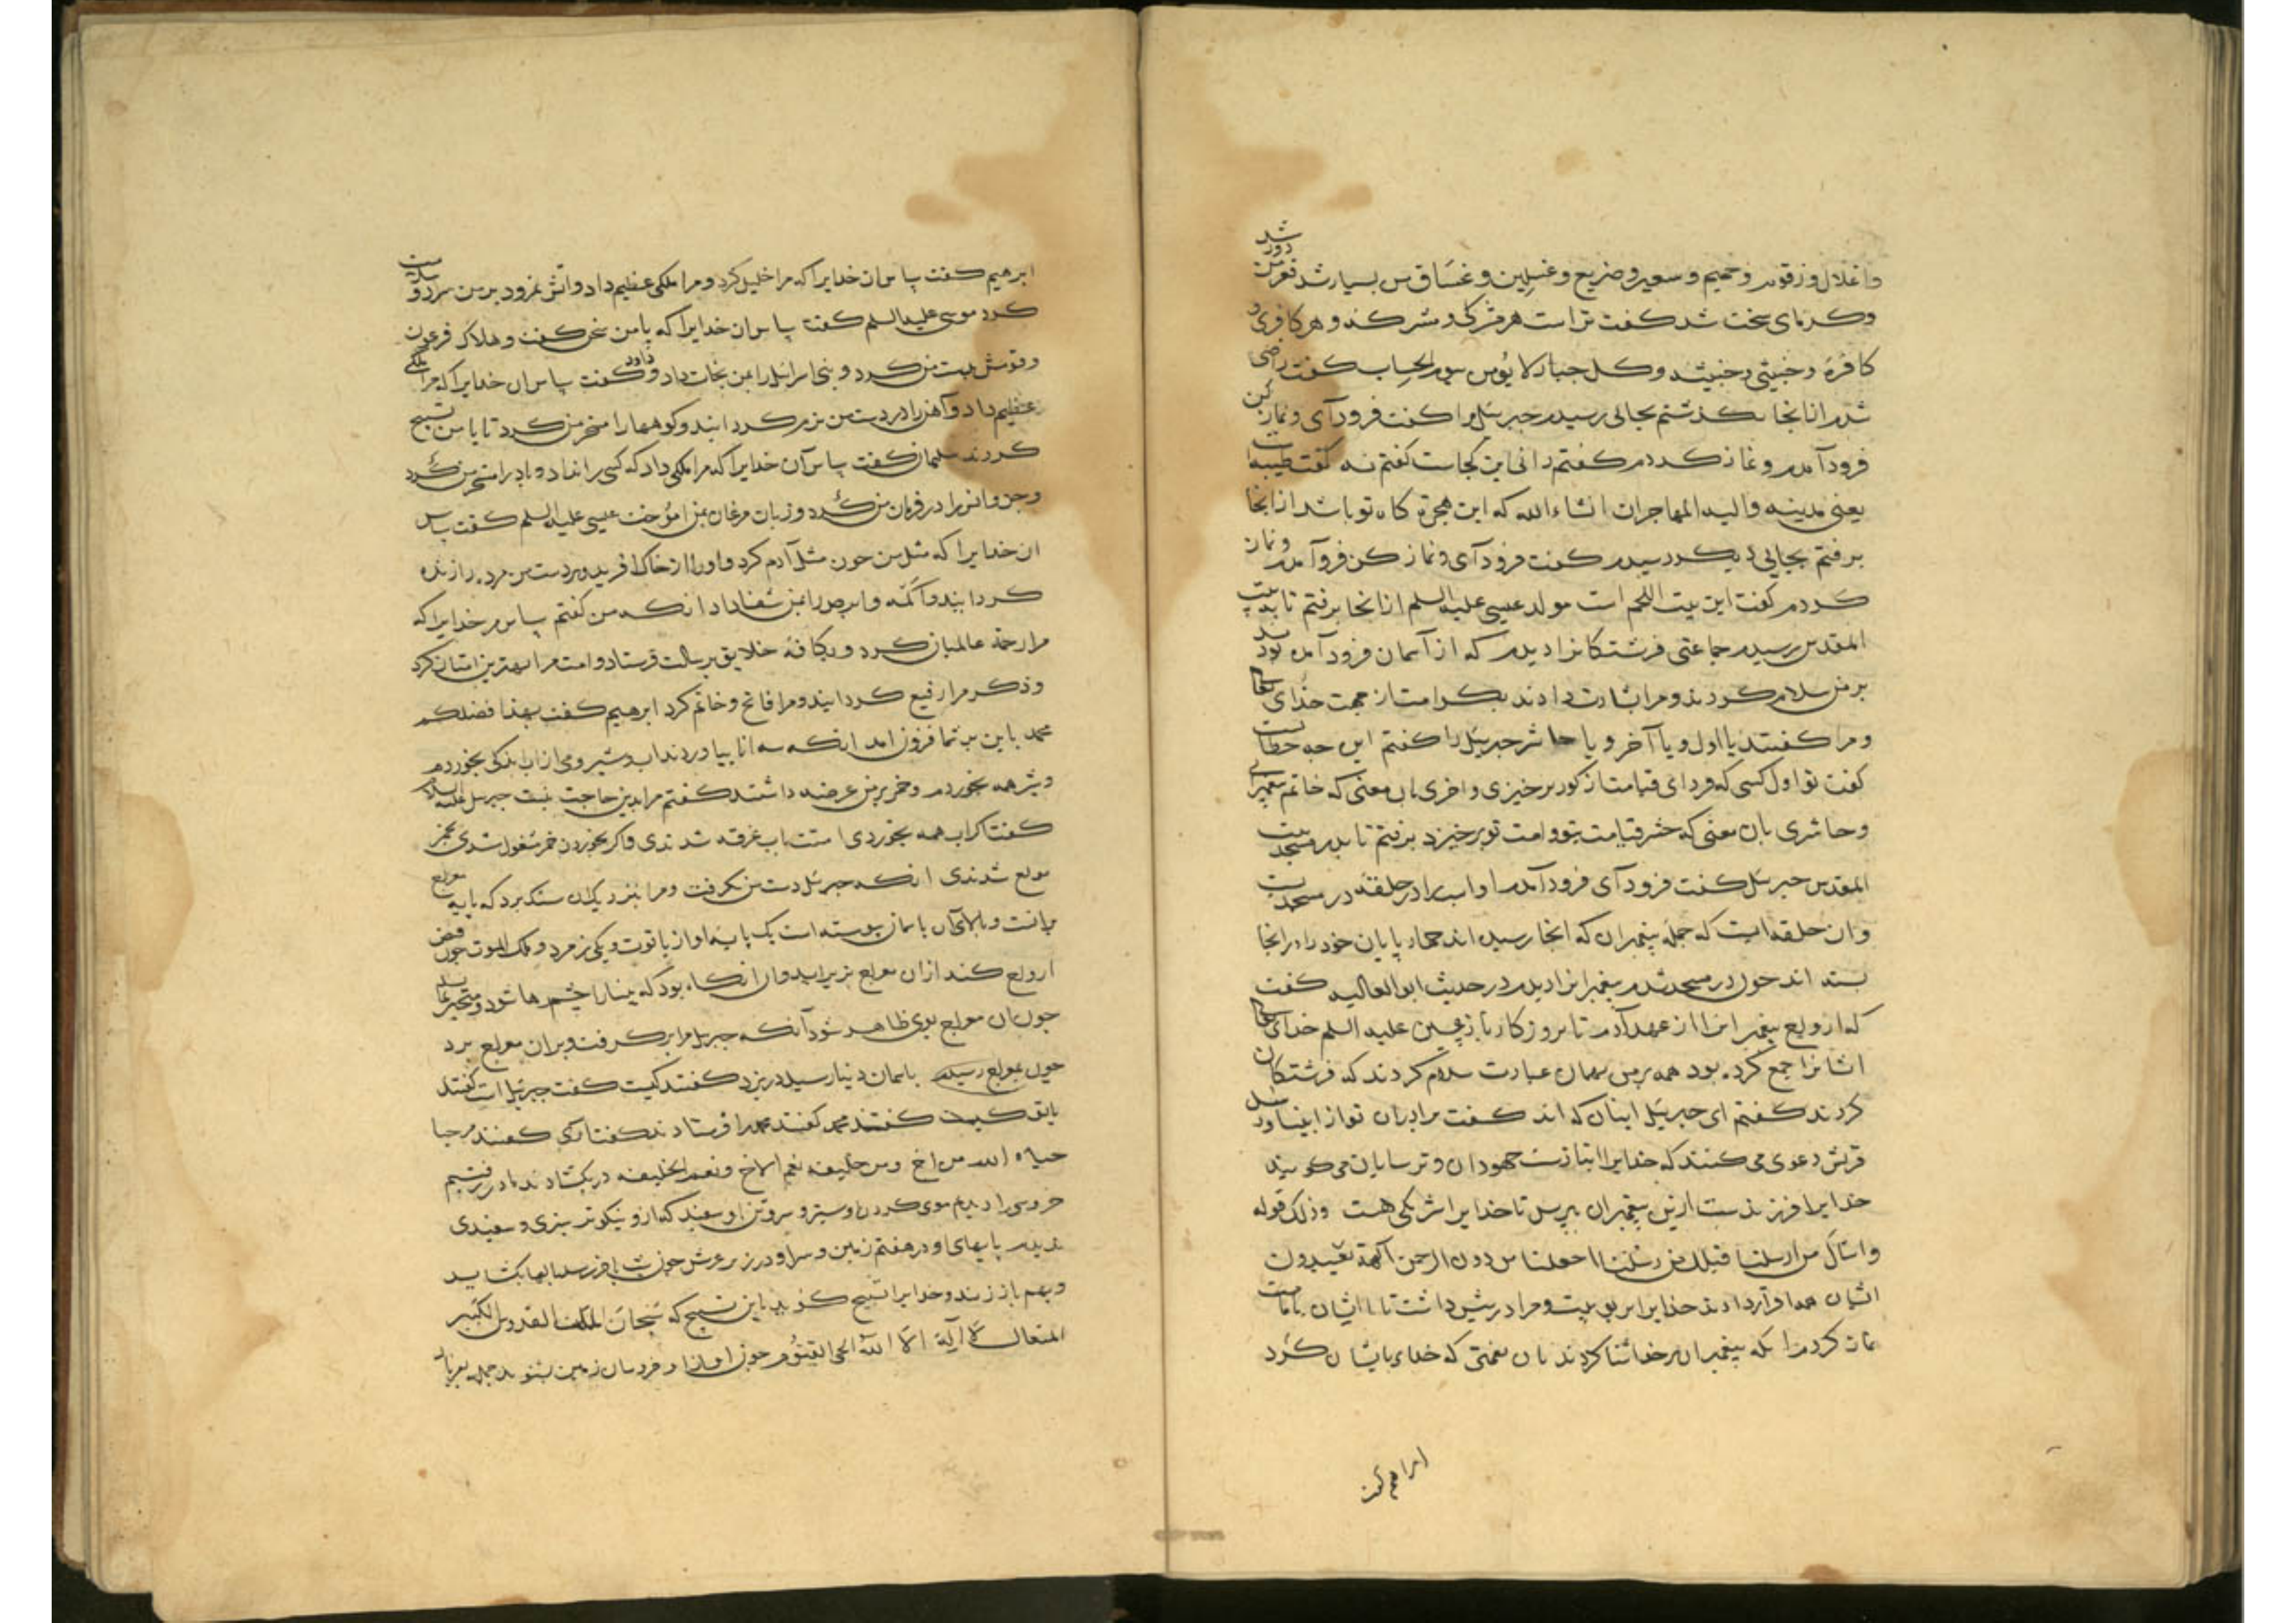 واغلال وزقوم وحمیم وسعیر وضریع وغسلین وغساق من بسیار شد قعر من دور شد
وکرمای سخت شد کفت تراست هر مشرکی ومشرکه وهر کافری و
کافره وخبیثی وخبیثه وکل جبار لا یؤمن بیوم الحساب کفت راضی
شدم از انجا بکذشتم بجائی رسیدم جبرئیل مرا کفت فرود آی ونماز کن
فرود آمدم ونماز کردم کفتم دانی این کجاست کفتم نه کفت طیبه است
یعنی مدینه والیه المهاجران انشاء الله که این هجرة کاه تو باشد از انجا
برفتم بجایی دیکر رسیدم کفت فرود آی ونماز کن فروآمدم ونماز
کردم کفت این بیت اللحم است مولد عیسی علیه السلم از انجا برفتم تا به بیت
المقدس رسیدم جماعتی فرشتکانرا دیدم که از آسمان فرود آمده بودند
بر من سلام کردند ومرا بشارت دادند بکرامت از جهت خدای تعالی
ومرا کفتند یا اول ویا آخر ویا حاشر جبرئیل را کفتم این چه خطابست
کفت تو اول کسی که فردای قیامت از کور برخیزی واخری بان معنی که خاتم پیغمبرانی
وحاشری بان معنی که حشر قیامت بتو وامت تو برخیزد برفتم تا بدر مسجد بیت
المقدس جبرئیل کفت فرود آی فرود آمدم او اسب را در حلقه در مسجد بست
وان حلقه است که جمله پیغمبران که انجا رسیده اند چهارپایان خود را در انجا
بسته اند چون در مسجد شدم پیغمبرانرا دیدم در حدیث ابو العالیه کفت
که ارواح پیغمبرانرا از عهد آدم تا بروزکار تا بعیسی علیه السلم خدای تعالی
ایشانرا جمع کرده بود همه بر من بهمان عبارت سلام کردند که فرشتکان
کردند کفتم ای جبرئیل اینان که اند کفت برادران تو از انبیا ورسل
قریش دعوی می کنند که خدایرا انبازست جهودان وترسایان می کویند
خدایرا فرزندست ازین پیغمبران بپرس تا خدایرا شریکی هست وذلک قوله
واسأل من ارسلنا قبلک من رسلنا اجعلنا من دون الرحمن آلهة یعبدون
ایشان همه اقرار دادند خدایرا بربوبیت ومرا در پیش داشت تا با ایشان بامامت
نماز کردم انکه پیغمبران بر خدا ثنا کردند بان نعمتی که خدای بایشان کرد
ابراهیم کفت
ابرهیم کفت سپاس ان خدایرا که مرا خلیل کرد ومرا ملکی عظیم داد وآتش نمرود بر من سرد وسلامت
کرد موسی علیه السلم کفت سپاس ان خدایرا که با من سخن کفت وهلاک فرعون
وقومش بدست من کرد وبنی اسرائیل را بمن نجات داد وداود کفت سپاس ان خدایرا که مرا ملکی
عظیم داد وآهن را در دست من نرم کردانید وکوهها را مسخر من کرد تا با من تسبیح
کردند سلیمان کفت سپاس آن خدایرا که مرا ملکی داد که کسی را نداد وباد را مسخر من کرد
وجن وانس را در فرمان من کرد وزبان مرغان بمن اموخت عیسی علیه السلم کفت سپاس
ان خدایرا که مثل من چون مثل آدم کرد واورا از خاک افرید وبر دست من مرده را زنده
کردانید واکمه وابرص را بمن شفا داد انکه من کفتم سپاس مر خدایرا که
مرا رحمة عالمیان کرد وبکافه خلایق برسالت فرستاد وامت مرا بهترین امتان کرد
وذکر مرا رفیع کردانید ومرا فاتح وخاتم کرد ابرهیم کفت بهذا فضلکم
محمد باین بر شما فزون امد انکه سه انا بیاوردند اب وشیر ومی از اب اندکی بخوردم
وشیر همه بخوردم وخمر بر من عرضه داشتند کفتم مرا بدین حاجت نیست جبرئیل علیه السلام
کفت اکر اب همه بخوردی امتت باب غرقه شدندی واکر بخوردن خمر مشغول شدی بخمر
مولع شدندی انکه جبرئیل دست من بکرفت ومرا بنزدیک ان سنک برد که پایه معراج
برانست وبالای آن باسمان پیوسته است یک پایه او از یاقوت ویکی زمرد وملک الموت چون قبض
ارواح کند ازان معراج بزیر اید وان انکاه بود که بینارا چشمها شود ومتحیر بماند
چون ان معراج بوی ظاهر شود آنکه جبرئیل مرا برکرفت وبران معراج برد
چون بمعراج رسیدم باسمان دنیا رسید در بزد کفتند کیست کفت جبرئیل است کفتند
با تو کیست کفتند محمد کفتند محمد را فرستادند کفت اری کفتند مرحبا
حیاه الله من اخ ومن خلیفه نعم الاخ ونعم الخلیفه در بکشادند ما در رفتیم
خروسی را دیدم موی کردن او سبز وسر وتن او سفید که ازو نیکوتر سبزی وسفیدی
ندیدم پایهای او در هفتم زمین وسر او در زیر عرش چون شب بآخر رسد بالها بکشاید
وبهم باز زند وخدایرا تسبیح کوید باین تسبیح که سبحان الملک القدوس الکبیر
المتعال لا اله الا الله الحی القیوم چون اواز او خروسان زمین بشنوند جمله